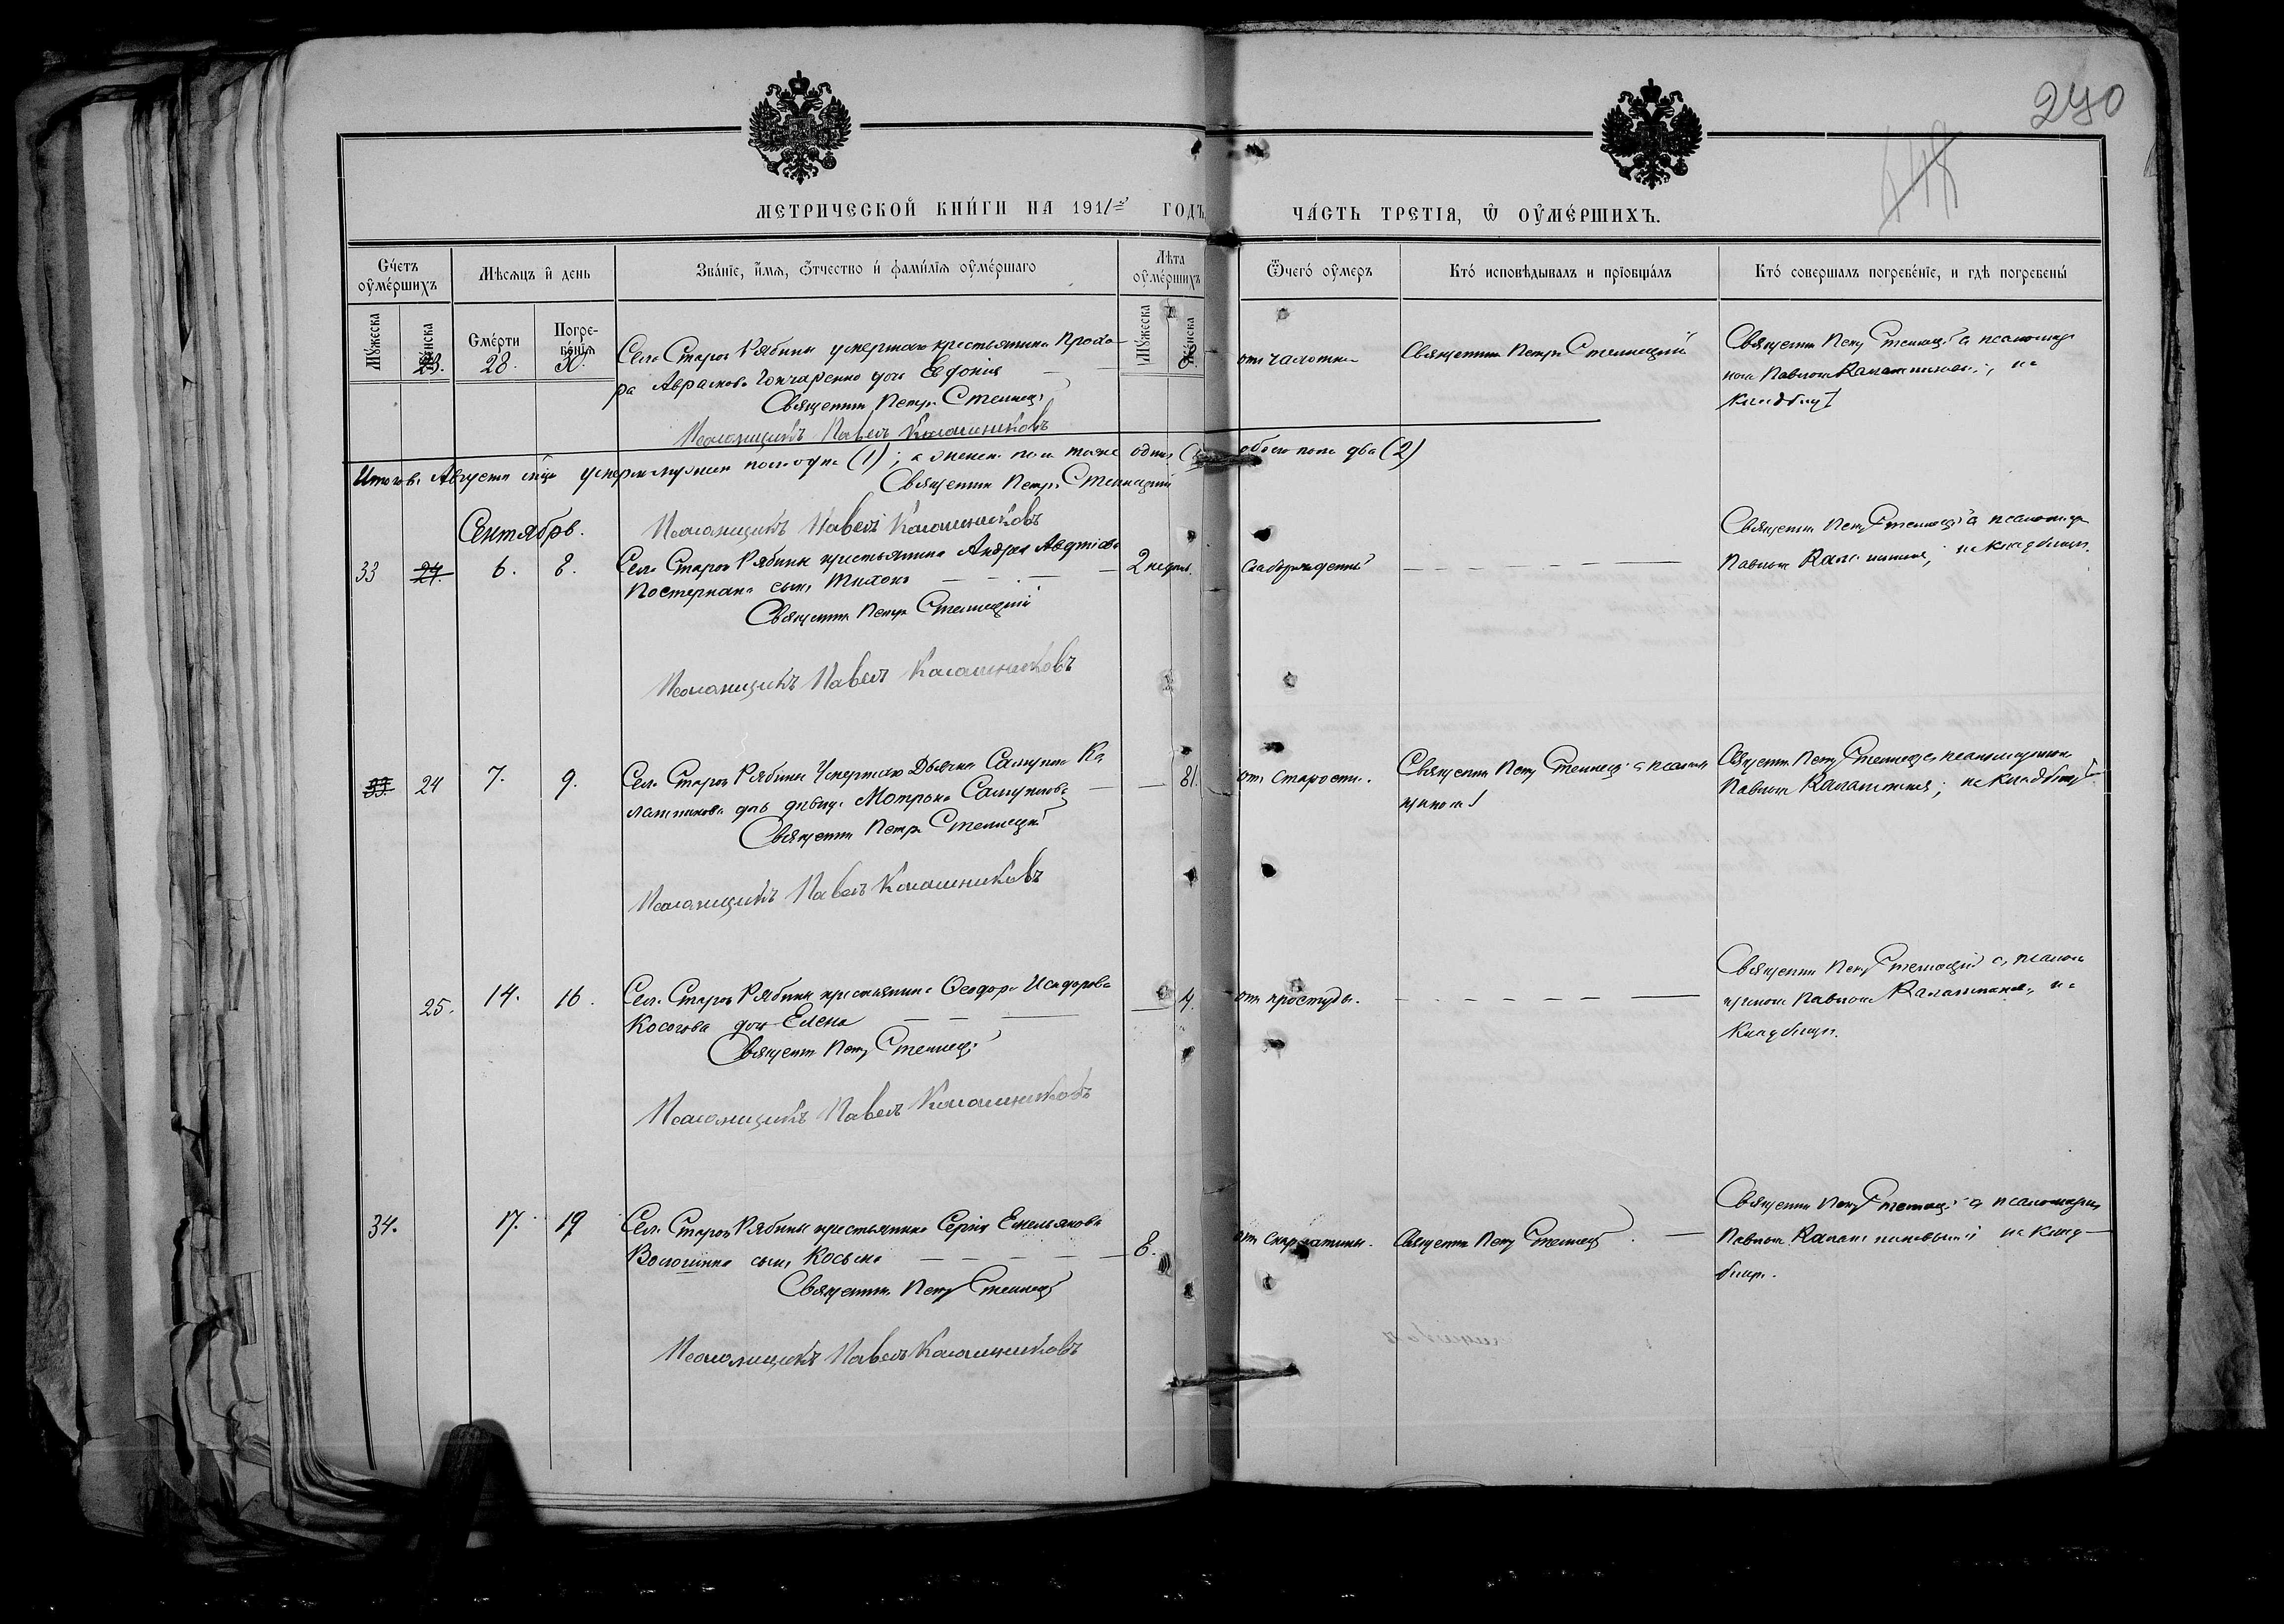 240
МЕТРИЧЕСКОЙ КНИГИ НА 1911 ГОДЪ,
ЧАСТЬ ТРЕТІЯ, Ѿ ОУМЕРШИХЪ.
Счетъ оумершихъ
Мѣсяцъ и день
Званіе, имя, отчество и фамилія оумершаго
Лѣта оумершихъ
Ѿчего оумеръ
Кто исповѣдывалъ и пріобщалъ
Кто совершалъ погребеніе, и гдѣ погребены
Мужеска
Женска
Смерти
Погребенія
Мужеска
Женска
23. 28. 30. Села Старой Рябины умершаго крестьянина Прохо-
ра Авраамова Гончаренко дочь Евфимія
Священникъ Петръ Стеллецкій
Псаломщикъ Павелъ Калашниковъ
отъ чахотки
Священникъ Петръ Стеллецкій
Священникъ Петръ Стеллецкій съ псаломщи-
комъ Павломъ Калашниковымъ, на
кладбищѣ
Итого въ Августѣ м-цѣ умерло мужеска пола одинъ (1); а женска пола тоже одна
обоего пола два (2)
Священникъ Петръ Стеллецкій
Псаломщикъ Павелъ Калашниковъ
Сентябрь.
33 24. 6. 8. Села Старой Рябины крестьянина Андрея
сынъ Тихонъ
2 недѣл.
Священникъ Петръ Стеллецкій
Псаломщикъ Павелъ Калашниковъ
Священникъ Петръ Стеллецкій съ псаломщи
Павломъ Калашников; на кладбищѣ.
33. 24 7. 9. Села Старой Рябины умершаго Дьячка Самуила Ка-
лашникова дочь дѣвица Мотрона Самуилова
81.
Священникъ Петръ Стеллецкій
Псаломщикъ Павелъ Калашниковъ
отъ старости.
Священникъ Петръ Стеллецкій съ псалом
щикомъ
Священникъ Петръ Стеллецкій съ псаломщикомъ
Павломъ Калашников; на кладбищѣ
25. 14. 16. Села Старой Рябины крестьянина Ѳеодора Исидорова
Косогова дочь Елена
4.
Священникъ Петръ Стеллецкій
Псаломщикъ Павелъ Калашниковъ
отъ простуды.
Священникъ Петръ Стеллецкій съ псалом
щикомъ Павломъ Калашников, на
кладбищѣ.
34. 17. 19 Села Старой Рябины крестьянина Сергія Емельянова
Волошина сынъ Косьма
8.
Священникъ Петръ Стеллецкій
Псаломщикъ Павелъ Калашниковъ
отъ скарлатины.
Священникъ Петръ Стеллецкій
Священникъ Петръ Стеллецкій съ псаломщик
Павломъ Калашниковымъ на клад-
бищѣ.